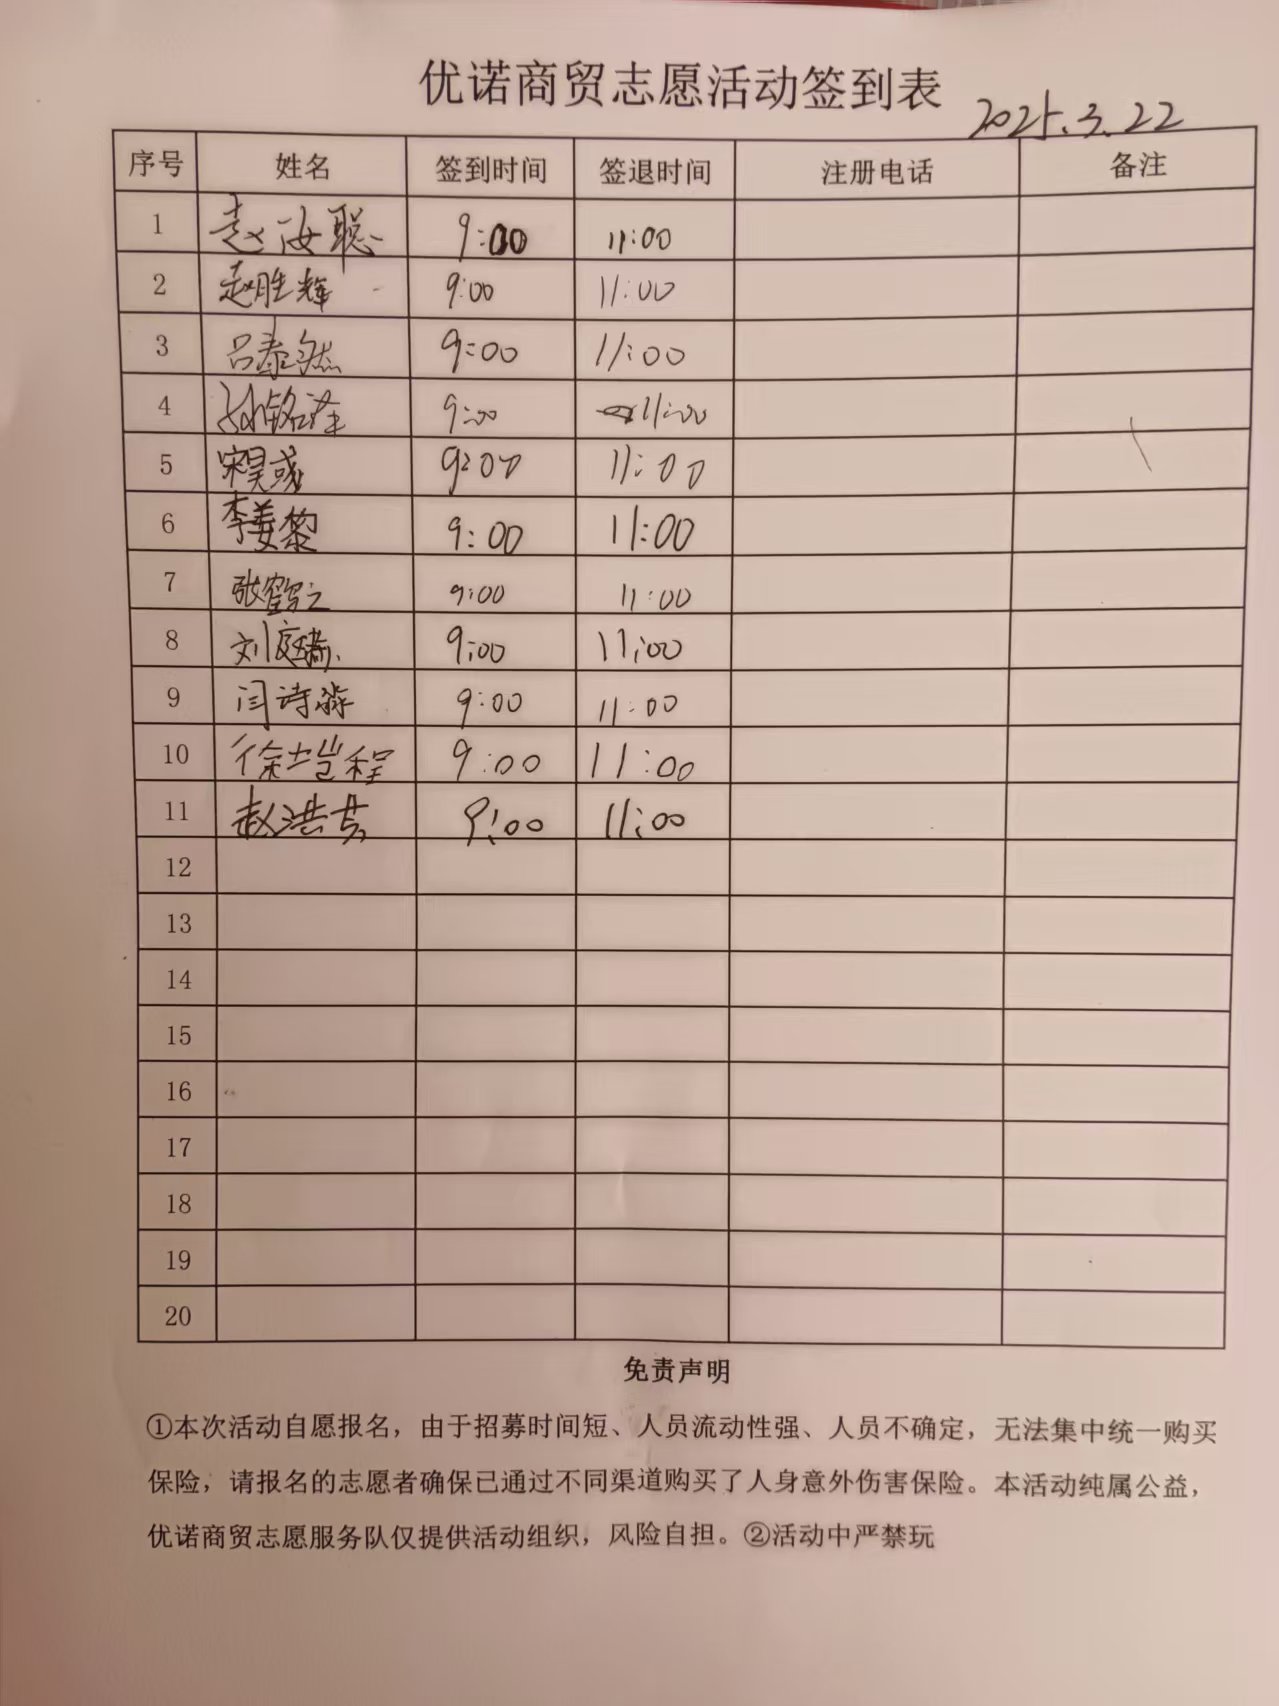 优诺商贸志愿活动签到表
2025.3.22
序号 姓名 签到时间 签退时间 注册电话 备注
1 赵汝聪 9:00 11:00
2 赵胜辉 9:00 11:00
3 吕泰然 9:00 11:00
4 孙铭泽 9:00 11:00
5 宋昊彧 9:00 11:00
6 李姜黎 9:00 11:00
7 张鹤之 9:00 11:00
8 刘庭 9:00 11:00
9 闫诗淼 9:00 11:00
10 徐士岂程 9:00 11:00
11 赵洪 9:00 11:00
12
13
14
15
16
17
18
19
20
免责声明
①本次活动自愿报名，由于招募时间短、人员流动性强、人员不确定，无法集中统一购买
保险，请报名的志愿者确保已通过不同渠道购买了人身意外伤害保险。本活动纯属公益，
优诺商贸志愿服务队仅提供活动组织，风险自担。②活动中严禁玩